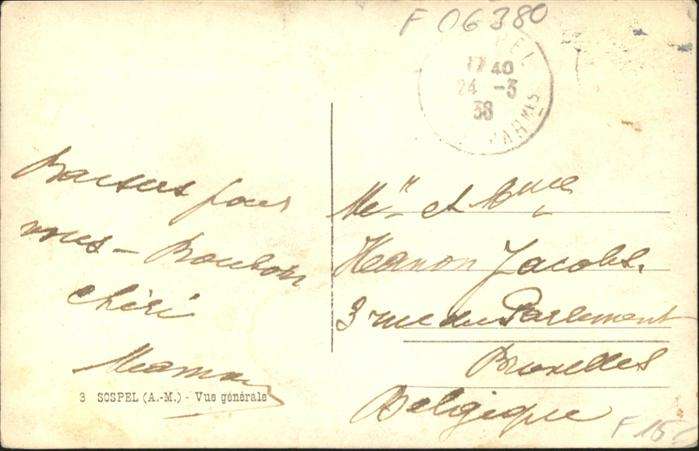 F 06380
17 40
24 - 3
38
Baisers pour
vous - Bonbon
chéri
Maman
3 SOSPEL (A.-M.) - Vue générale
Mr et Mme
Hanon Jacobs.
3 rue du Parlement
Bruxelles
Belgique
F 15